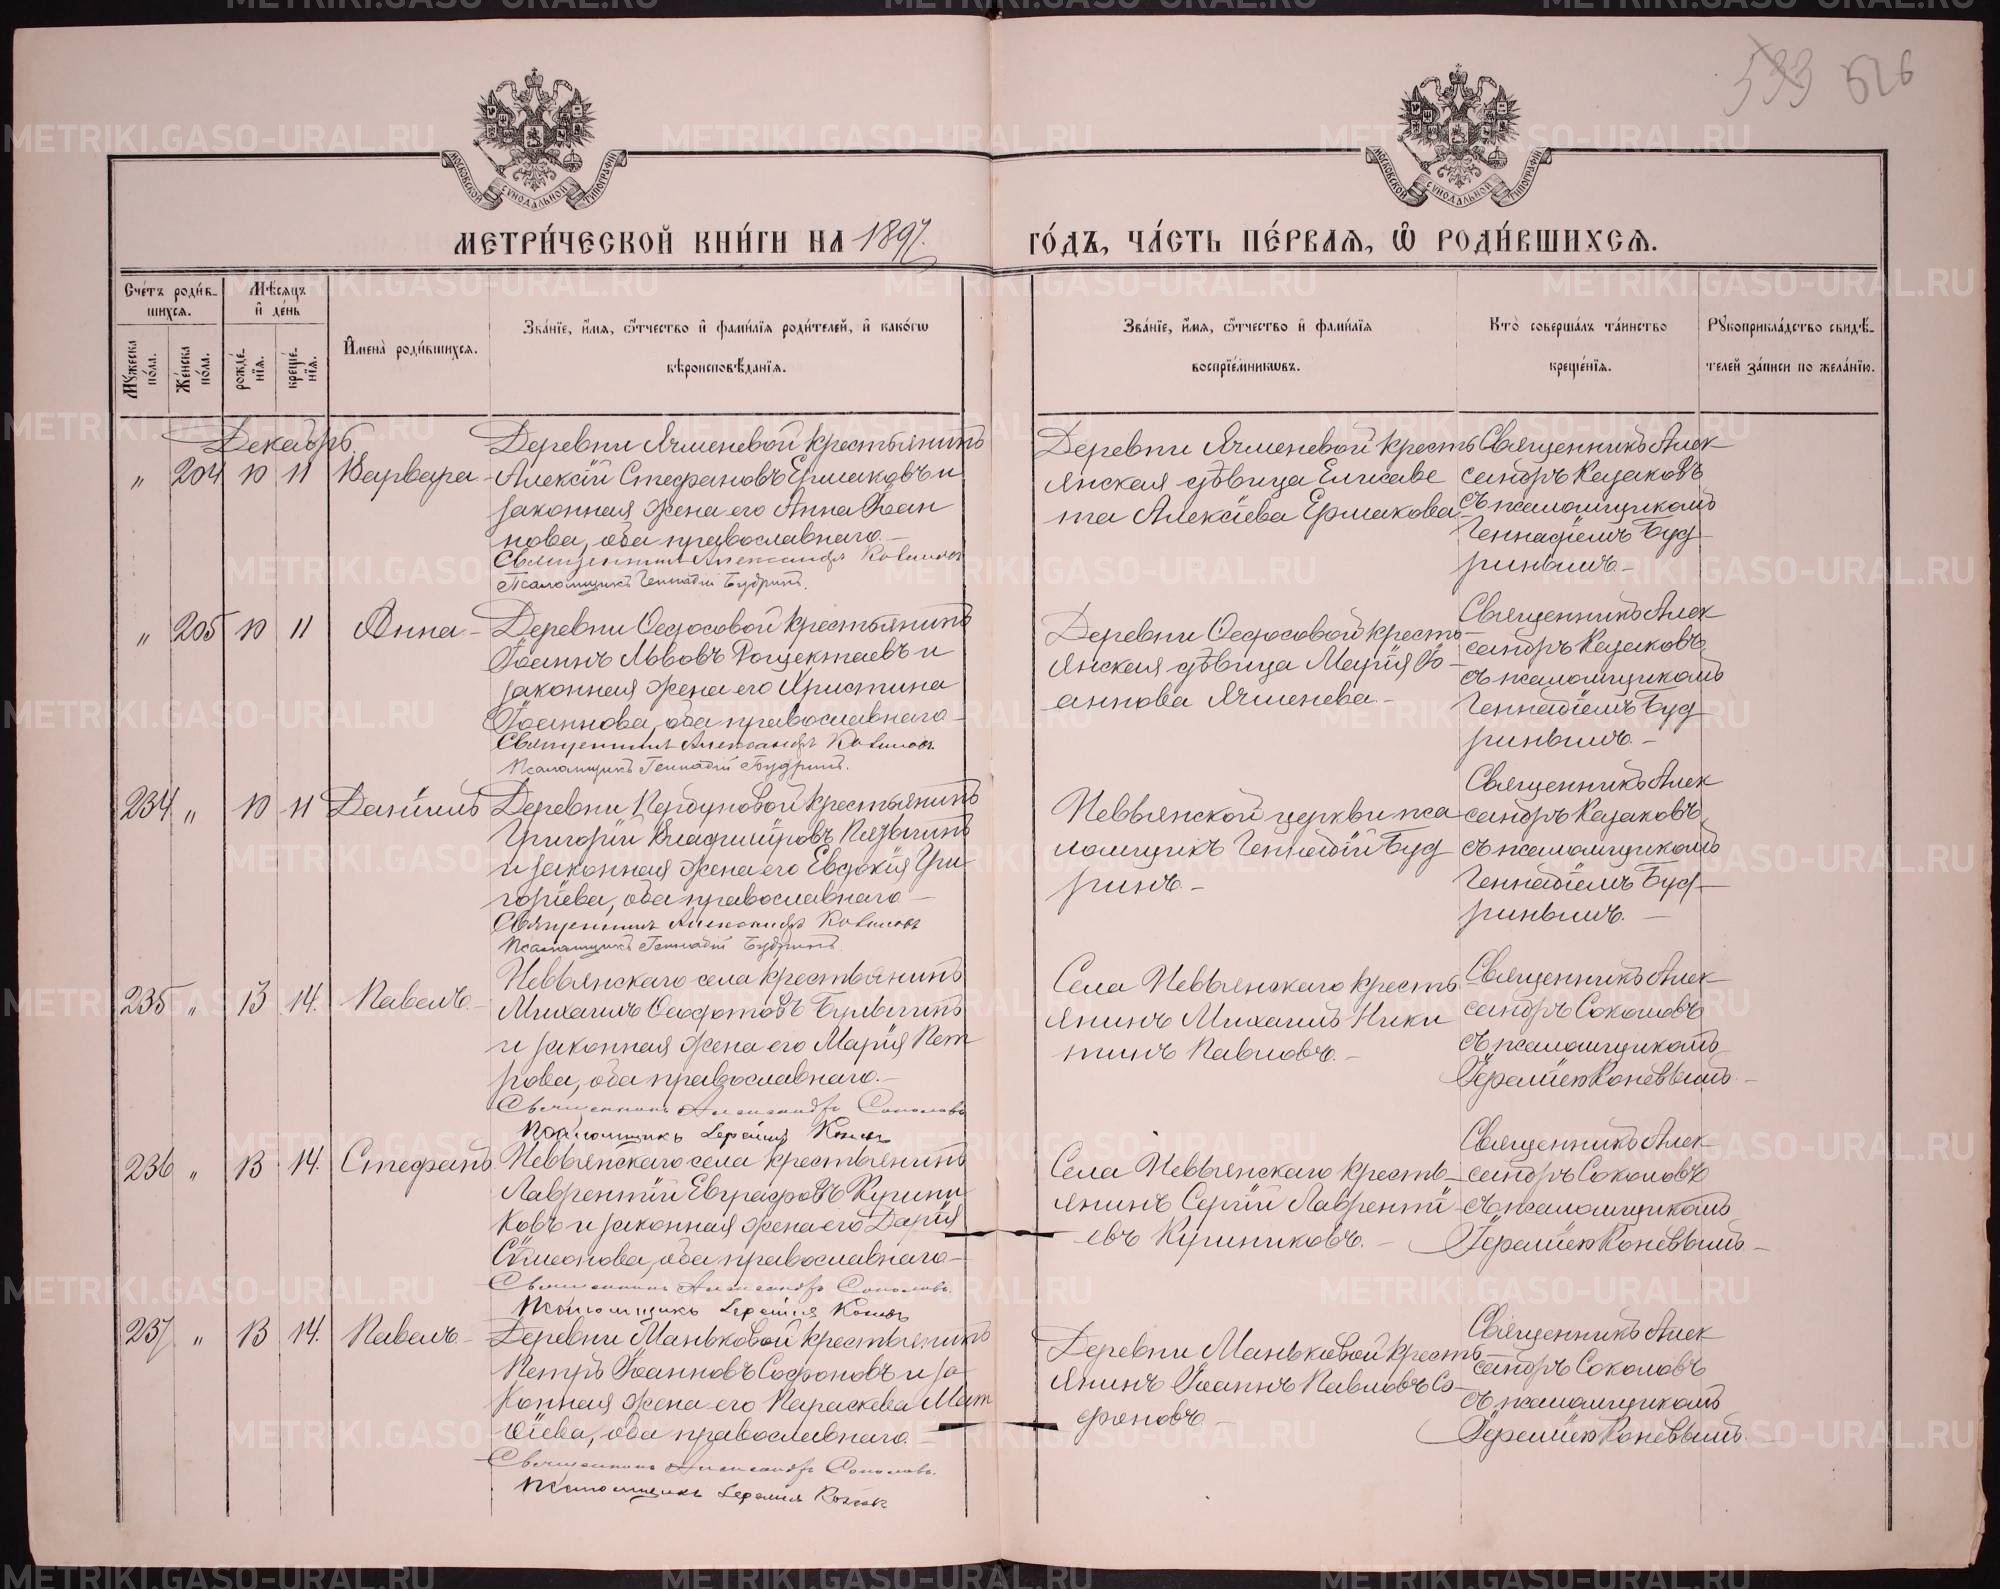 533 526
МОСКОВСКОЙ СѴНОДАЛЬНОЙ ТИПОГРАФІИ
МОСКОВСКОЙ СѴНОДАЛЬНОЙ ТИПОГРАФІИ
МЕТРИ́ЧЕСКОЙ КНИ́ГИ НА 1897.
ГО́ДЪ, ЧА́СТЬ ПЕ́РВАЯ, Ѡ РОДИ́ВШИХСЯ.
Сче́тъ роди́в-
шихся.
Мѣ́сяцъ
и҆ де́нь
Мꙋ́жеска по́ла.
Же́нска по́ла.
рожде́-
нїя.
креще́-
нїя.
И҆мена̀ роди́вшихся.
Зва́нїе, и҆́мя, ѻ҆́тчество и҆ фами́лїя роди́телей, и҆ како́гѡ
вѣроисповѣ́данїя.
Зва́нїе, и҆́мя, ѻ҆́тчество и҆ фами́лїя
воспрїе́мникѡвъ.
Кто̀ соверша́лъ та́инство
креще́нїя.
Рꙋкоприкла́дство свидѣ́-
телей за́писи по жела́нїю.
Декабрь.
" 204 10 11 Варвара –
Деревни Ячменевой крестьянинъ
Алексій Стефановъ Ермаковъ и
законная жена его Анна Іоан
нова, оба православнаго –
Священникъ Александръ Казаковъ
Псаломщикъ Геннадій Будринъ.
Деревни Ячменевой кресть
янская дѣвица Елисаве
та Алексіева Ермакова
Священникъ Алек
сандръ Казаковъ
съ псаломщикомъ
Геннадіемъ Буд
ринымъ –
" 205 10 11 Анна –
Деревни Федосовой крестьянинъ
Іоаннъ Львовъ Рощектаевъ и
законная жена его Христина
Іоаннова, оба православнаго –
Священникъ Александръ Казаковъ
Псаломщикъ Геннадій Будринъ.
Деревни Федосовой кресть
янская дѣвица Марія Іо
аннова Ячменева. –
Священникъ Алек
сандръ Казаковъ
съ псаломщикомъ
Геннадіемъ Буд
ринымъ. –
234 " 10 11 Даніилъ
Деревни Кердуновой крестьянинъ
Григорій Владиміровъ Пузыгинъ
и законная жена его Евдокія Гри
горіева, оба православнаго –
Священникъ Александръ Казаковъ
Псаломщикъ Геннадій Будринъ.
Невьянской церкви пса
ломщикъ Геннадій Буд
ринъ. –
Священникъ Алек
сандръ Казаковъ
съ псаломщикомъ
Геннадіемъ Буд–
ринымъ. –
235 " 13 14. Павелъ. –
Невьянскаго села крестьянинъ
Михаилъ Феодотовъ Булыгинъ
и законная жена его Марія Пет
рова, оба православнаго. –
Священникъ Александръ Соколовъ
Псаломщикъ Іеремій Коневъ
Села Невьянскаго кресть
янинъ Михаилъ Ники
тинъ Павловъ. –
Священникъ Алек–
сандръ Соколовъ
съ псаломщикомъ
Іереміею Коневымъ –
236 " 13 14. Стефанъ
Невьянскаго села крестьянинъ
Лаврентій Евграфовъ Куини
ковъ и законная жена его Дарія
Симеонова, оба православнаго –
Священникъ Александръ Соколовъ.
Псаломщикъ Іеремія Коневъ
Села Невьянскаго кресть–
янинъ Сергій Лавренті
евъ Куиниковъ. –
Священникъ Алек
сандръ Соколовъ
съ псаломщикомъ
Іереміею Коневымъ –
237 " 13 14. Павелъ –
Деревни Маньковой крестьянинъ
Петръ Іоанновъ Софоновъ и за
конная жена его Параскева Мат
ѳіева, оба православнаго. –
Священникъ Александръ Соколовъ.
Псаломщикъ Іеремія Коневъ
Деревни Маньковой кресть
янинъ Іоаннъ Павловъ Со–
фоновъ –
Священникъ Алек
сандръ Соколовъ
съ псаломщикомъ
Іереміею Коневымъ.
METRIKI.GASO-URAL.RU